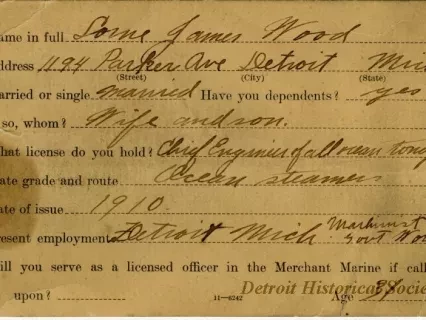 ame in full Lorne James Wood
ddress 1194 Parker Ave Detroit Mic
(Street) (City) (State)
arried or single married Have you dependents? yes
so, whom? Wife and son.
hat license do you hold? Chief Engineer of all ocean tonn
ate grade and route Ocean steamers
ate of issue 1910
resent employment Detroit Mich Govt
ill you serve as a licensed officer in the Merchant Marine if call
upon? 11—6242 Age 38
Detroit Historical Socie